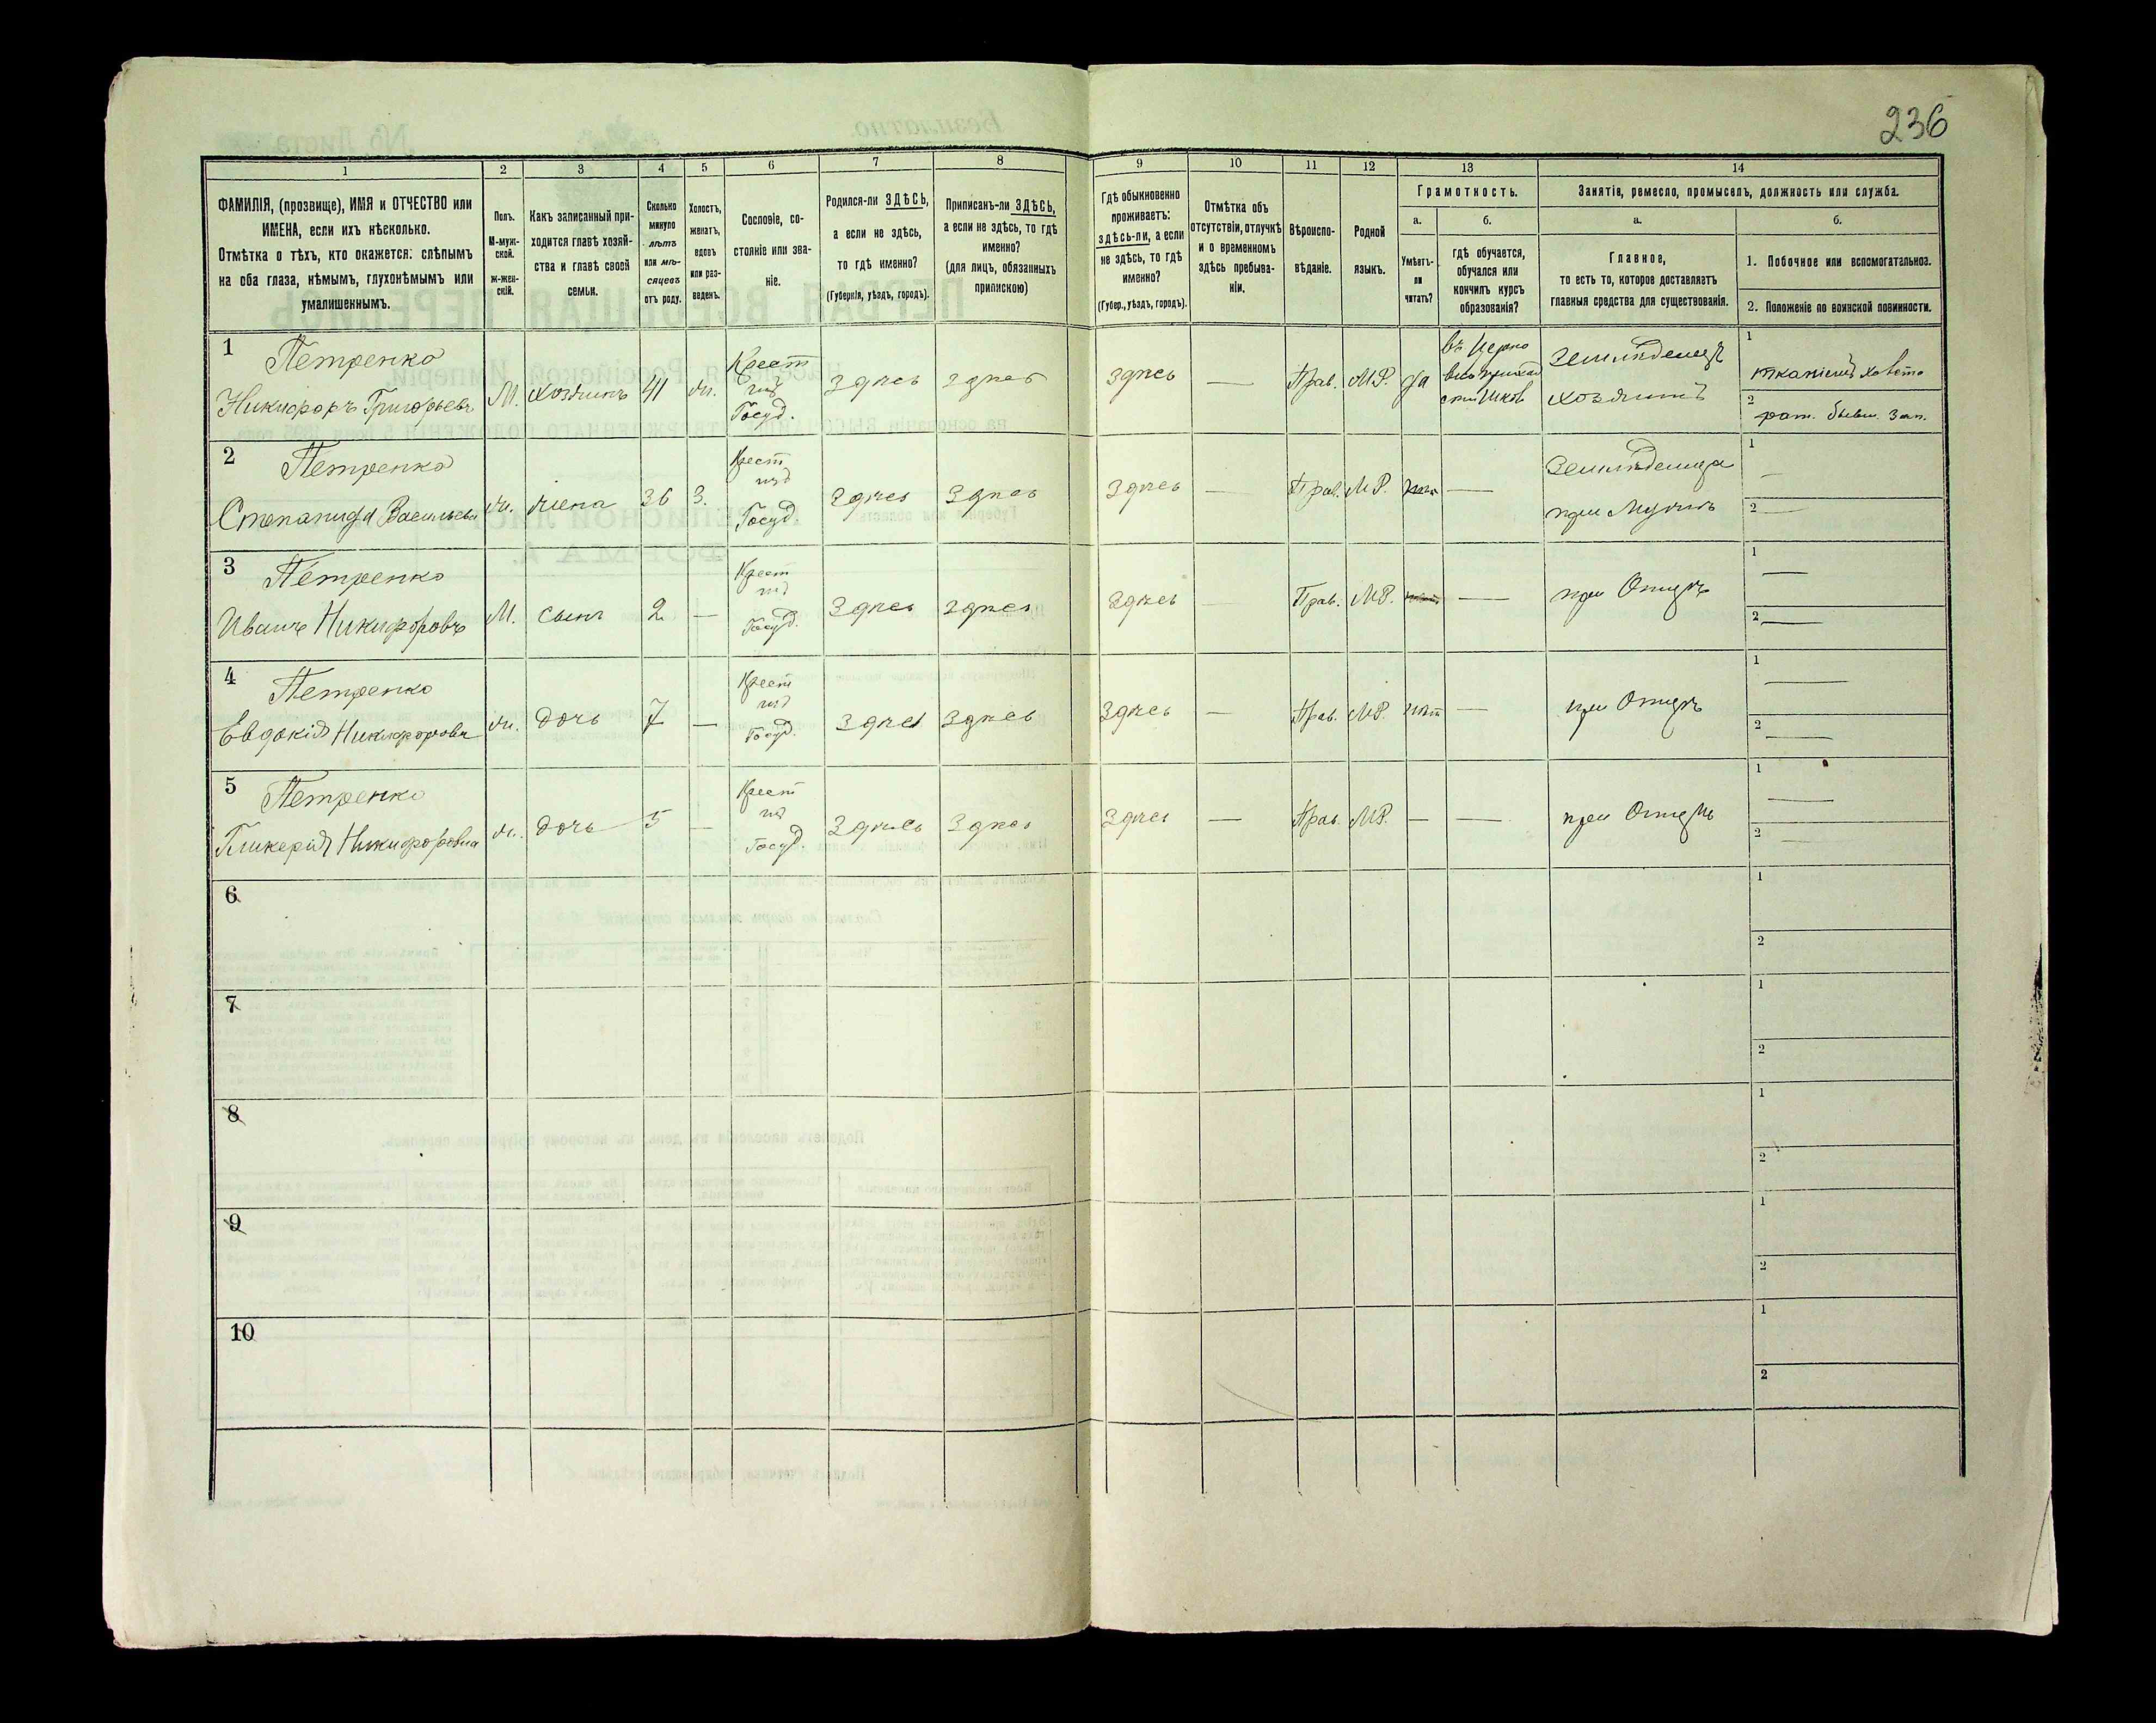 236
1
2
3
4
5
6
7
8
9
10
11
12
13
14
ФАМИЛІЯ, (прозвище), ИМЯ и ОТЧЕСТВО или
ИМЕНА, если ихъ нѣсколько.
Отмѣтка о тѣхъ, кто окажется: слѣпымъ
на оба глаза, нѣмымъ, глухонѣмымъ или
умалишеннымъ.
Полъ.
М-муж-
ской.
Ж-жен-
скій.
Какъ записанный при-
ходится главѣ хозяй-
ства и главѣ своей
семьи.
Сколько
минуло
лѣтъ
или мѣ-
сяцевъ
отъ роду.
Холостъ,
женатъ,
вдовъ
или раз-
веденъ.
Сословіе, со-
стояніе или зва-
ніе.
Родился-ли ЗДѢСЬ,
а если не здѣсь,
то гдѣ именно?
(Губернія, уѣздъ, городъ).
Приписанъ-ли ЗДѢСЬ,
а если не здѣсь, то гдѣ
именно?
(для лицъ, обязанныхъ
припискою)
Гдѣ обыкновенно
проживаетъ:
здѣсь-ли, а если
не здѣсь, то гдѣ
именно?
(Губер., уѣздъ, городъ).
Отмѣтка объ
отсутствіи, отлучкѣ
и о временномъ
здѣсь пребыва-
ніи.
Вѣроиспо-
вѣданіе.
Родной
языкъ.
Грамотность.
а.
б.
Умѣетъ-
ли
читать?
гдѣ обучается,
обучался или
кончилъ курсъ
образованія?
Занятіе, ремесло, промыселъ, должность или служба.
а.
б.
Главное,
то есть то, которое доставляетъ
главныя средства для существованія.
1. Побочное или вспомогательное.
2. Положеніе по воинской повинности.
1
Петренко
Никифоръ Григорьевъ
М.
хозяинъ
41
ж.
Крест
изъ
Госуд.
здѣсь
здѣсь
здѣсь
—
Прав.
М.Р.
да
Земледѣлецъ
хозяинъ
1
2
рат. бывш. зап.
2
Петренко
Степанида Васильева
ж.
жена
36
з.
Крест
изъ
Госуд.
здѣсь
здѣсь
здѣсь
—
Прав.
М.Р.
нѣт
—
Земледѣлица
при Мужѣ
1 —
2 —
3
Петренко
Иванъ Никифоровъ
М.
сынъ
2
—
Крест
изъ
Госуд.
здѣсь
здѣсь
здѣсь
—
Прав.
М.Р.
—
при Отцѣ
1 —
2 —
4
Петренко
Евдокія Никифоровна
ж.
дочь
7
—
Крест
изъ
Госуд.
здѣсь
здѣсь
здѣсь
—
Прав.
М.Р.
нѣт
—
при Отцѣ
1 —
2 —
5
Петренко
Гликерія Никифоровна
ж.
дочь
5
—
Крест
изъ
Госуд.
здѣсь
здѣсь
здѣсь
—
Прав.
М.Р.
—
—
при Отцѣ
1 —
2 —
6
1
2
7
1
2
8
1
2
9
1
2
10
1
2